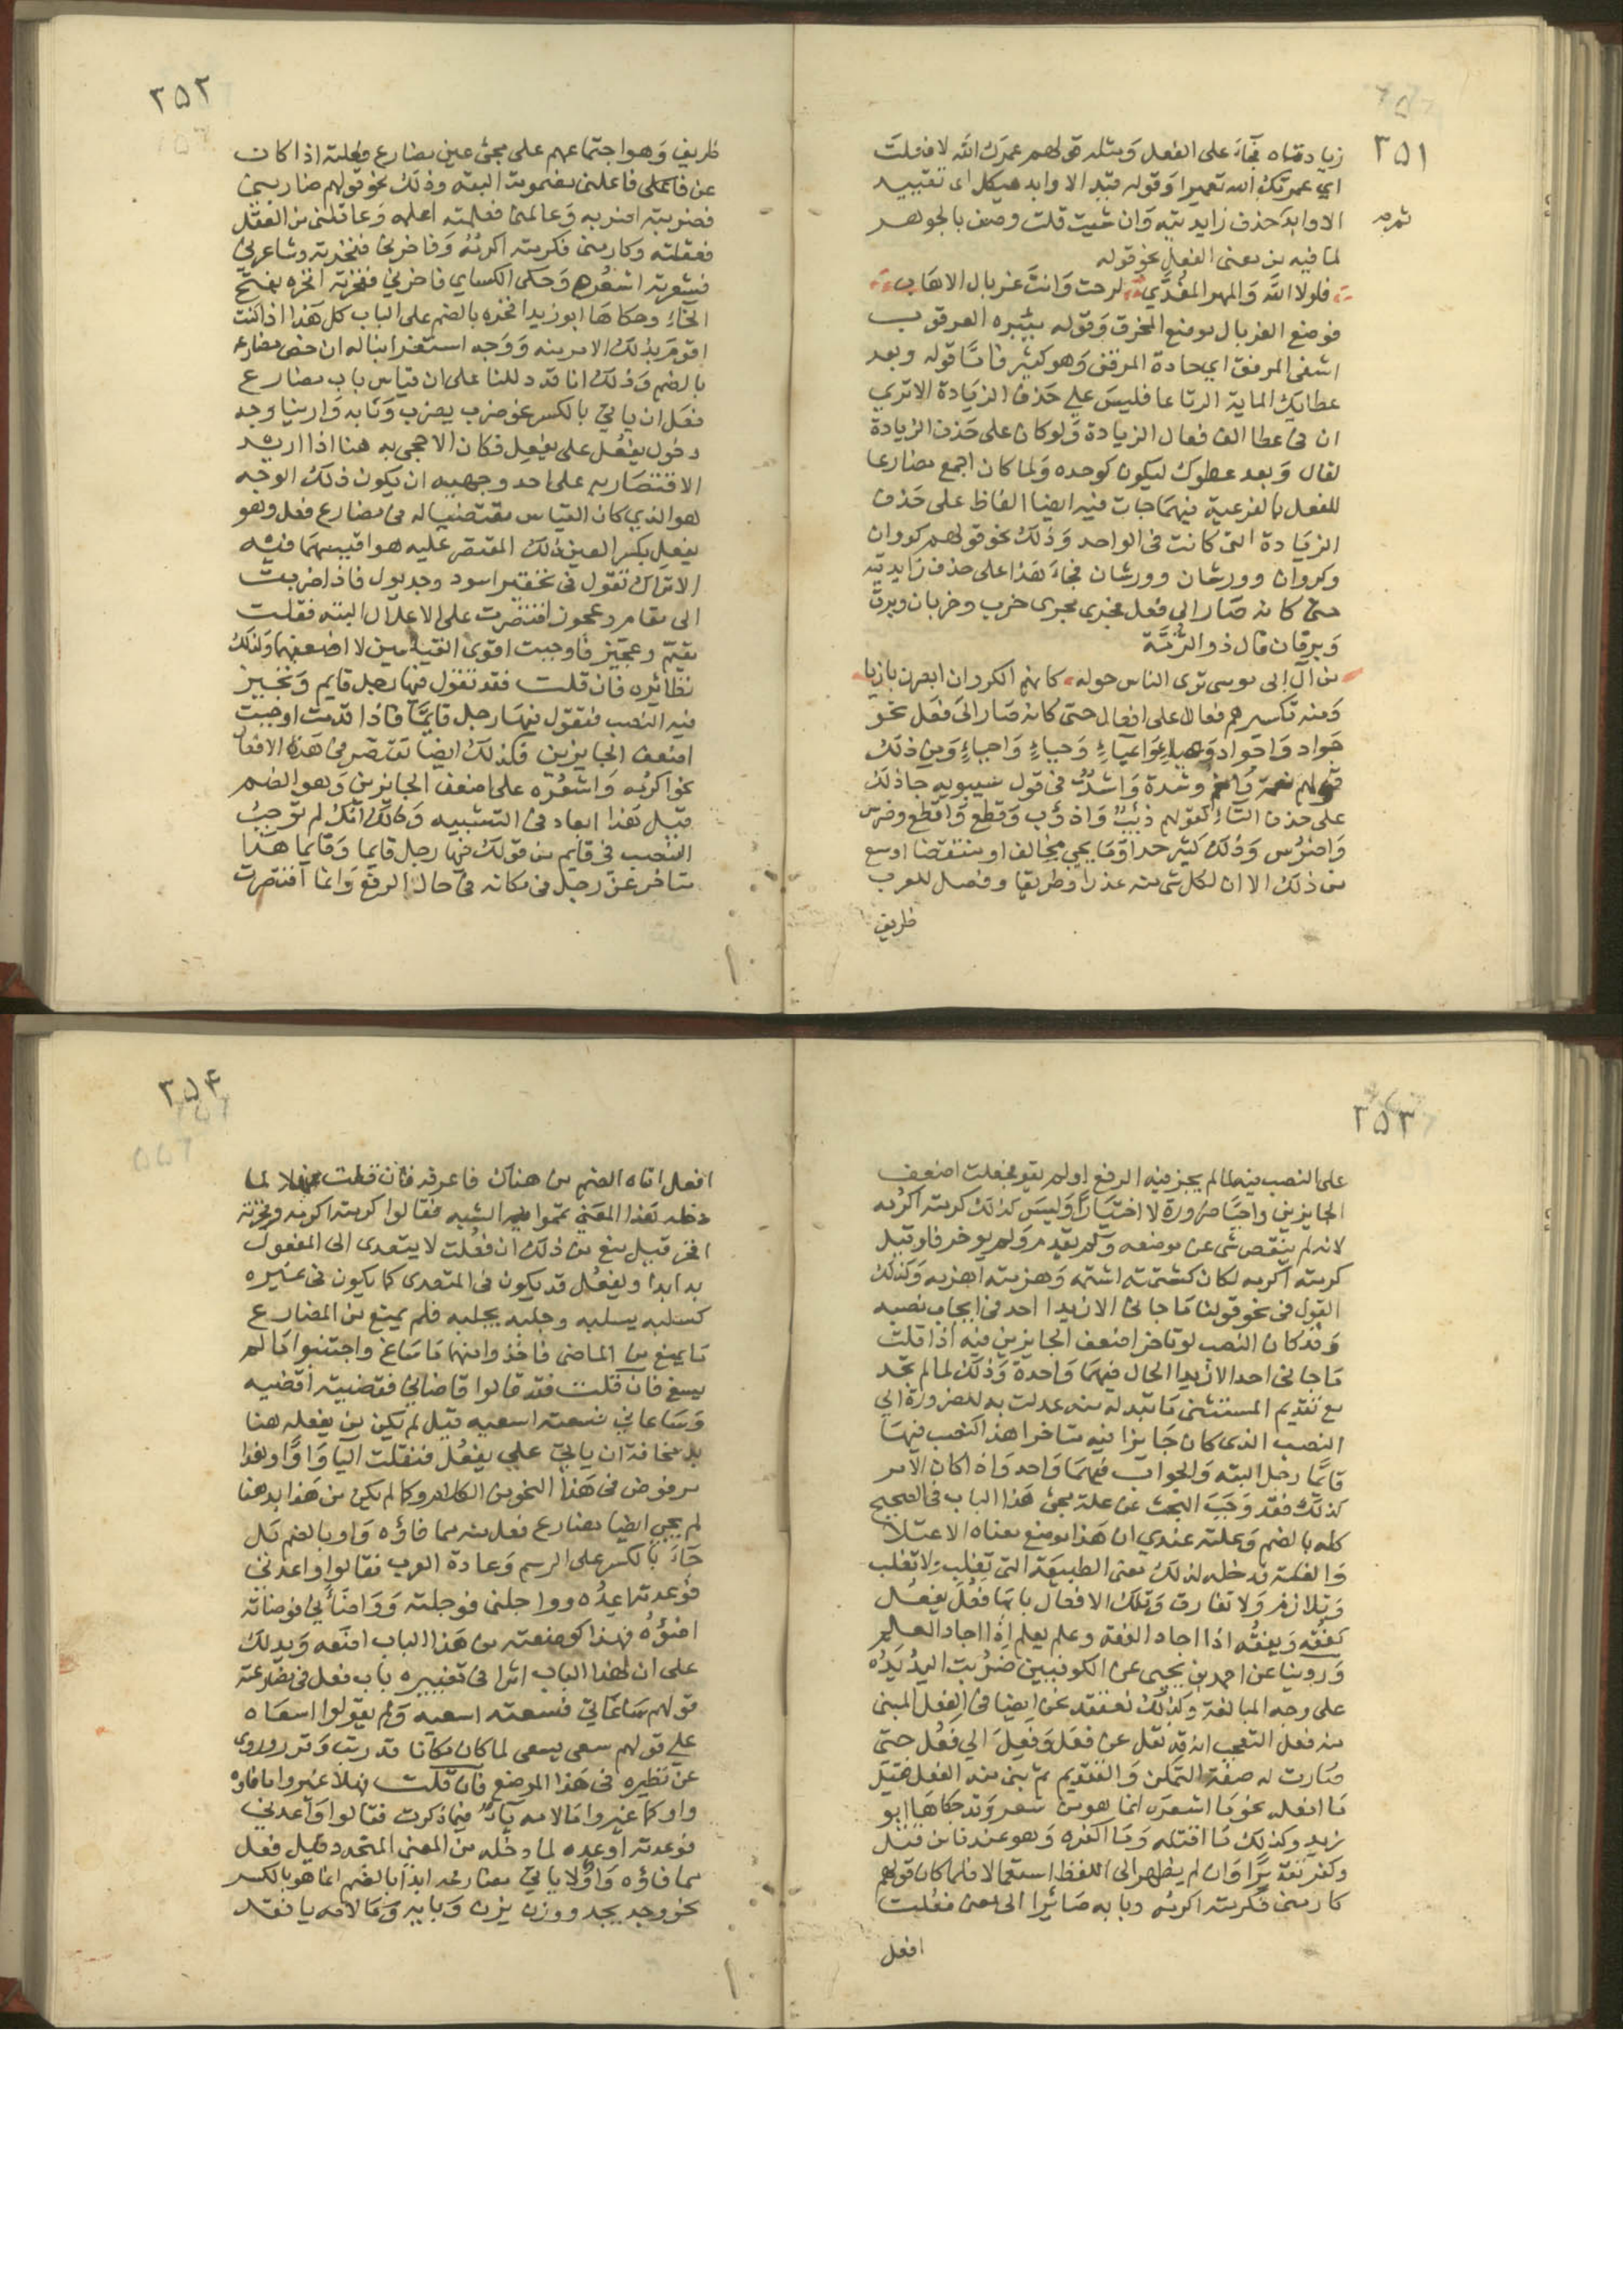 ٣٥١
زيادتاه فجآء على الفعل ومثله قولهم عمرك الله لا فعلت
اي عمرتك الله تعميرا وقوله قيد الاوابد هيكل اى تقييد
الاوابد حذف زايديته وان شيت قلت وصف بالجوهر
لما فيه من معنى الفعل نحو قوله
فلولا الله والمهر المفدي لرحت وانت غربال الاهاب
فوضع الغربال موضع المخرق وقوله مئبرة العرقوب
اشفى المرفق اي حادة المرفق وهو كثير فامّا قوله وبعد
عطايك الماية الرتاعا فليس علي حذف الزيادة الاتري
ان في عطا الف فعال الزيادة ولو كان على حذف الزيادة
لقال وبعد عطوك ليكون كوحده ولما كان الجمع مضارعا
للفعل بالفرعية فيهما جات فيه ايضا الفاظ على حذف
الزيادة التى كانت فى الواحد وذلك نحو قولهم كروان
وكروان وورشان وورشان فجاء هذا على حذف زايديته
حتى كانه صار الى فعل فجرى مجرى خرب وخربان وبرق
وبرقان قال ذو الرُمّة
من آل ابى موسى ترى الناس حوله كانهم الكروان ابصرن بازيا
ومنه تكسيرهم فعالا على افعال حتى كانه صار الى فعل نحو
جواد واجواد وعياء واعياء وحياء واحياء ومن ذلك
قولهم نعمة وانعم وشدة واشدّ فى قول سيبويه جا ذلك
على حذف التاء كقولهم ذئب واذؤب وقطع واقطع وضرس
واضرُس وذلك كثير جدا وما يجي مخالفا ومنتقضا اوسع
من ذلك الا ان لكل شى منه عذرا وطريقا وفصل للعرب
طريف
٣٥٢
طريف وهو اجتماعهم على مجئ عين مضارع فعلته اذا كان
من فاعلنى فاعلنى مضمومة البتة وذلك نحو قولهم ضاربنى
فضربته اضربه وعالمنى فعلمته اعلمه وعاقلنى من العقل
فعقلته وكارمنى فكرمته اكرمُه وفاخرنى ففخرته وشاعرني
فشعرته اشعُره وحكى الكساي فاخرني ففخرته افخره بفتح
الخاء وحكاها ابو زيد افخره بالضم على الباب كل هذا اذا كنت
اقوم بذلك الامر منه ووجه استغرابنا له ان خص مضارعه
بالضم وذلك انا قد دللنا على ان قياس باب مضارع
فعَل ان ياتي بالكسر نحو ضرب يضرب وبابه وارينا وجه
دخول يفعُل على يفعِل فكان الاحجى به هنا اذا اريد
الاقتصار به على احد وجهيه ان يكون ذلك الوجه
هو الذي كان القياس مقتضيا له فى مضارع فعل وهو
يفعِل بكسر العين وذلك المقتصر عليه هو اقيسهما فيه
الا تراك تقول فى تحقير اسود وجدول فاذا ضربت
الى مقام وعجوز اقتصرت على الاعلال البتة فقلت
مقيّم وعجيّز فاوجبت اقوى القياسين لا اضعفهما وكذلك
نظائره فان قلت فقد تقول فيها رجل قايم وتجيز
فيه النصب فتقول فيها رجل قايمًا فاذا قدمت اوجبت
اضعف الجايزين فكذلك ايضا تقتصر فى هذه الافعال
نحو اكرمُه واشعُره على اضعف الجائزين وهو الضم
قيل هذا ابعاد فى التشبيه وذلك انّك لم توجبُ
النصب فى قايم من قولك فيها رجل قايما وقايما هذا
متاخر عن رجل فى مكانه فى حال الرفع وانما اقتصرت
٣٥٣
على النصب فيه لما لم يجز فيه الرفع او لم يقو فجعلت اضعف
الجايزين واجبا ضرورة لا اختيارًا وليس كذلك كرمته اكرُمه
لانه لم ينقض شى عن موضعه ولم يقدم ولم يوخر فلو قيل
كرمته اكرِمه لكان كشتمته اشتمه وهزمته اهزمه وكذلك
القول فى نحو قولنا ما جانى الا زيدا احد فى ايجاب نصبه
وقد كان النصب لو تاخر اضعف الجايزين فيه اذا قلت
ما جانى احد الا زيدا الحال فيهما واحدة وذلك لما لم تجد
مع تقديم المستثنى ما تبدله منه عدلت به للضرورة الي
النصب الذى كان جايزا فيه متاخرا هذا كنصب فيها
قايمًا رجل البتة والجواب فيهما واحد واذا كان الامر
كذلك فقد وجبَ البحث عن علة مجئ هذا الباب فى الصحيح
كله بالضم وعلته عندي ان هذا موضع معناه الاعتلا
والغلبة فدخله لذلك معنى الطبيعة التى تغلِب ولا تغلب
وتلازم ولا تفارق وتلك الافعال بابها فعُل يفعُل
كفقُه ويفقُه اذا اجاد الفقه وعلم يعلم اذا اجاد العلم
وروينا عن احمد بن يحيى عن الكوفيين ضرُبت اليدُ يدُه
على وجه المبالغة وكذلك نعتقد نحن ايضا فى الفعل المبنى
منه فعل التعجب انه قد نقل عن فعَل وفعِل الي فعُل حتى
صارت له صفة التمكن والتقديم ثم بنى منه الفعل فقيل
ما افعله نحو ما اشعره انما هو من شعر وقد حكاها ابو
زيد وكذلك ما اقتله وما اكفره وهو عندنا من قتُل
وكفر تقديرًا وان لم يظهر الى اللفظ استعمالا فلما كان قولهم
كارمنى فكرمته اكرمُه وبابه صائرا الى معنى فعُلت
افعل
٣٥٤
افعل اتاه الضم من هناك فاعرفه فان قلت فهلا لما
دخله هذا المعنى تمموا فيه الشبه فقالوا كرمته اكرمه وفخرته
افخر قيل منع من ذلك ان فعُلت لا يتعدى الى المفعول
به ابدا ويفعُل قد يكون فى المتعدى كما يكون فى غيره
كسلبه يسلبه وجلبه يجلبه فلم يمنع من المضارع
ما يمنع من الماضى فاخذوا منهما ما ساغ واجتنبوا ما لم
يسغ فان قلت فقد قالوا قاضانى فقضيته اقضيه
وساعاني فسعيته اسعيه قيل لم يكن من يفعله هنا
بد مخافة ان ياتي علي يفعُل فتنقلب اليا واوًا وهذا
مرفوض فى هذا النحو من الكلام وكما لم يكن من هذا بد هنا
لم يجى ايضا مضارع فعل منه مما فاؤه واو بالضم بل
جاءَ بالكسر على الرسم وعادة العرب فقالوا واعدنى
فوعدته اعِدُه وواجلنى فوجلته وواضأني فوضأته
اضؤُه فهذا كوضعته من هذا الباب اضعه ويدلك
على ان لهذا الباب اثرا فى تغييره باب فعل فى مضارعه
قولهم ساعاني فسعيته اسعيه ولم يقولوا اسعاه
علي قولهم سعى يسعى لما كان مكانا قد رتب وقرر وزوى
عن نظيره فى هذا الموضع فان قلت فهلا غيروا ما فاؤه
واو كما غيروا ما لامه ياء فيما ذكرت فقالوا واعدني
فوعدته اوعده لما دخله من المعنى المتجدد قيل فعل
مما فاؤه واو لا ياتي مضارعه ابدا بالضم انما هو بالكسر
نحو وجد يجد ووزن يزن وبابه وما لامه يا فقد